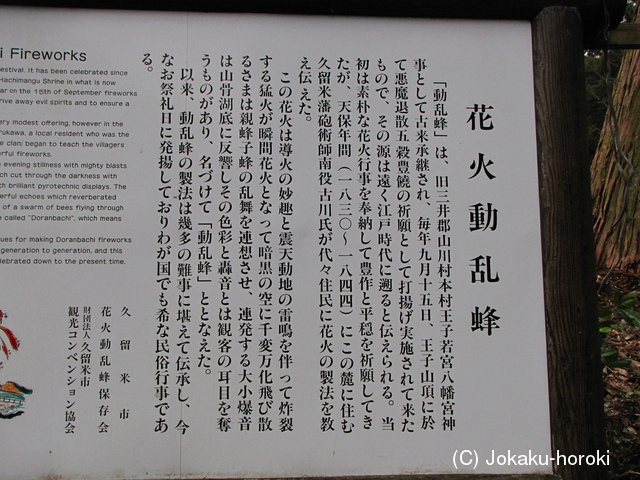 花火動乱蜂
「動乱蜂」は、旧三井郡山川村本村王子若宮八幡宮神
事として古来承継され、毎年九月十五日、王子山頂に於
て悪魔退散五穀豊饒の祈願として打揚げ実施されて来た
もので、その源は遠く江戸時代に遡ると伝えられる。当
初は素朴な花火行事を奉納して豊作と平穏を祈願してき
たが、天保年間(一八三〇〜一八四四)にこの麓に住む
久留米藩砲術師南役古川氏が代々住民に花火の製法を教
え伝えた。
この花火は導火の妙趣と震天動地の雷鳴を伴って炸裂
する猛火が瞬間花火となって暗黒の空に千変万化飛び散
るさまは親蜂子蜂の乱舞を連想させ、連発する大小爆音
は山骨湖底に反響しその色彩と轟音とは観客の耳目を奪
うものがあり、名づけて「動乱蜂」ととなえた。
以来、動乱蜂の製法は幾多の難事に堪えて伝承し、今
なお祭礼日に発揚しておりわが国でも希な民俗行事であ
る。
久留米市
花火動乱蜂保存会
財団法人久留米市
観光コンベンション協会
i Fireworks
estival. It has been celebrated since
Hachimangu Shrine in what is now
ar on the 15th of September fireworks
rive away evil spirits and to ensure a
ery modest offering, however in the
urukawa, a local resident who was the
e clan; began to teach the villagers
erful fireworks.
e evening stillness with mighty blasts
ch cut through the darkness with
th brilliant pyrotechnic displays. The
erful echoes which reverberated
of a swarm of bees flying through
e called "Doranbachi", which means
ques for making Doranbachi fireworks
generation to generation, and this
elebrated down to the present time.
(C) Jokaku-horoki